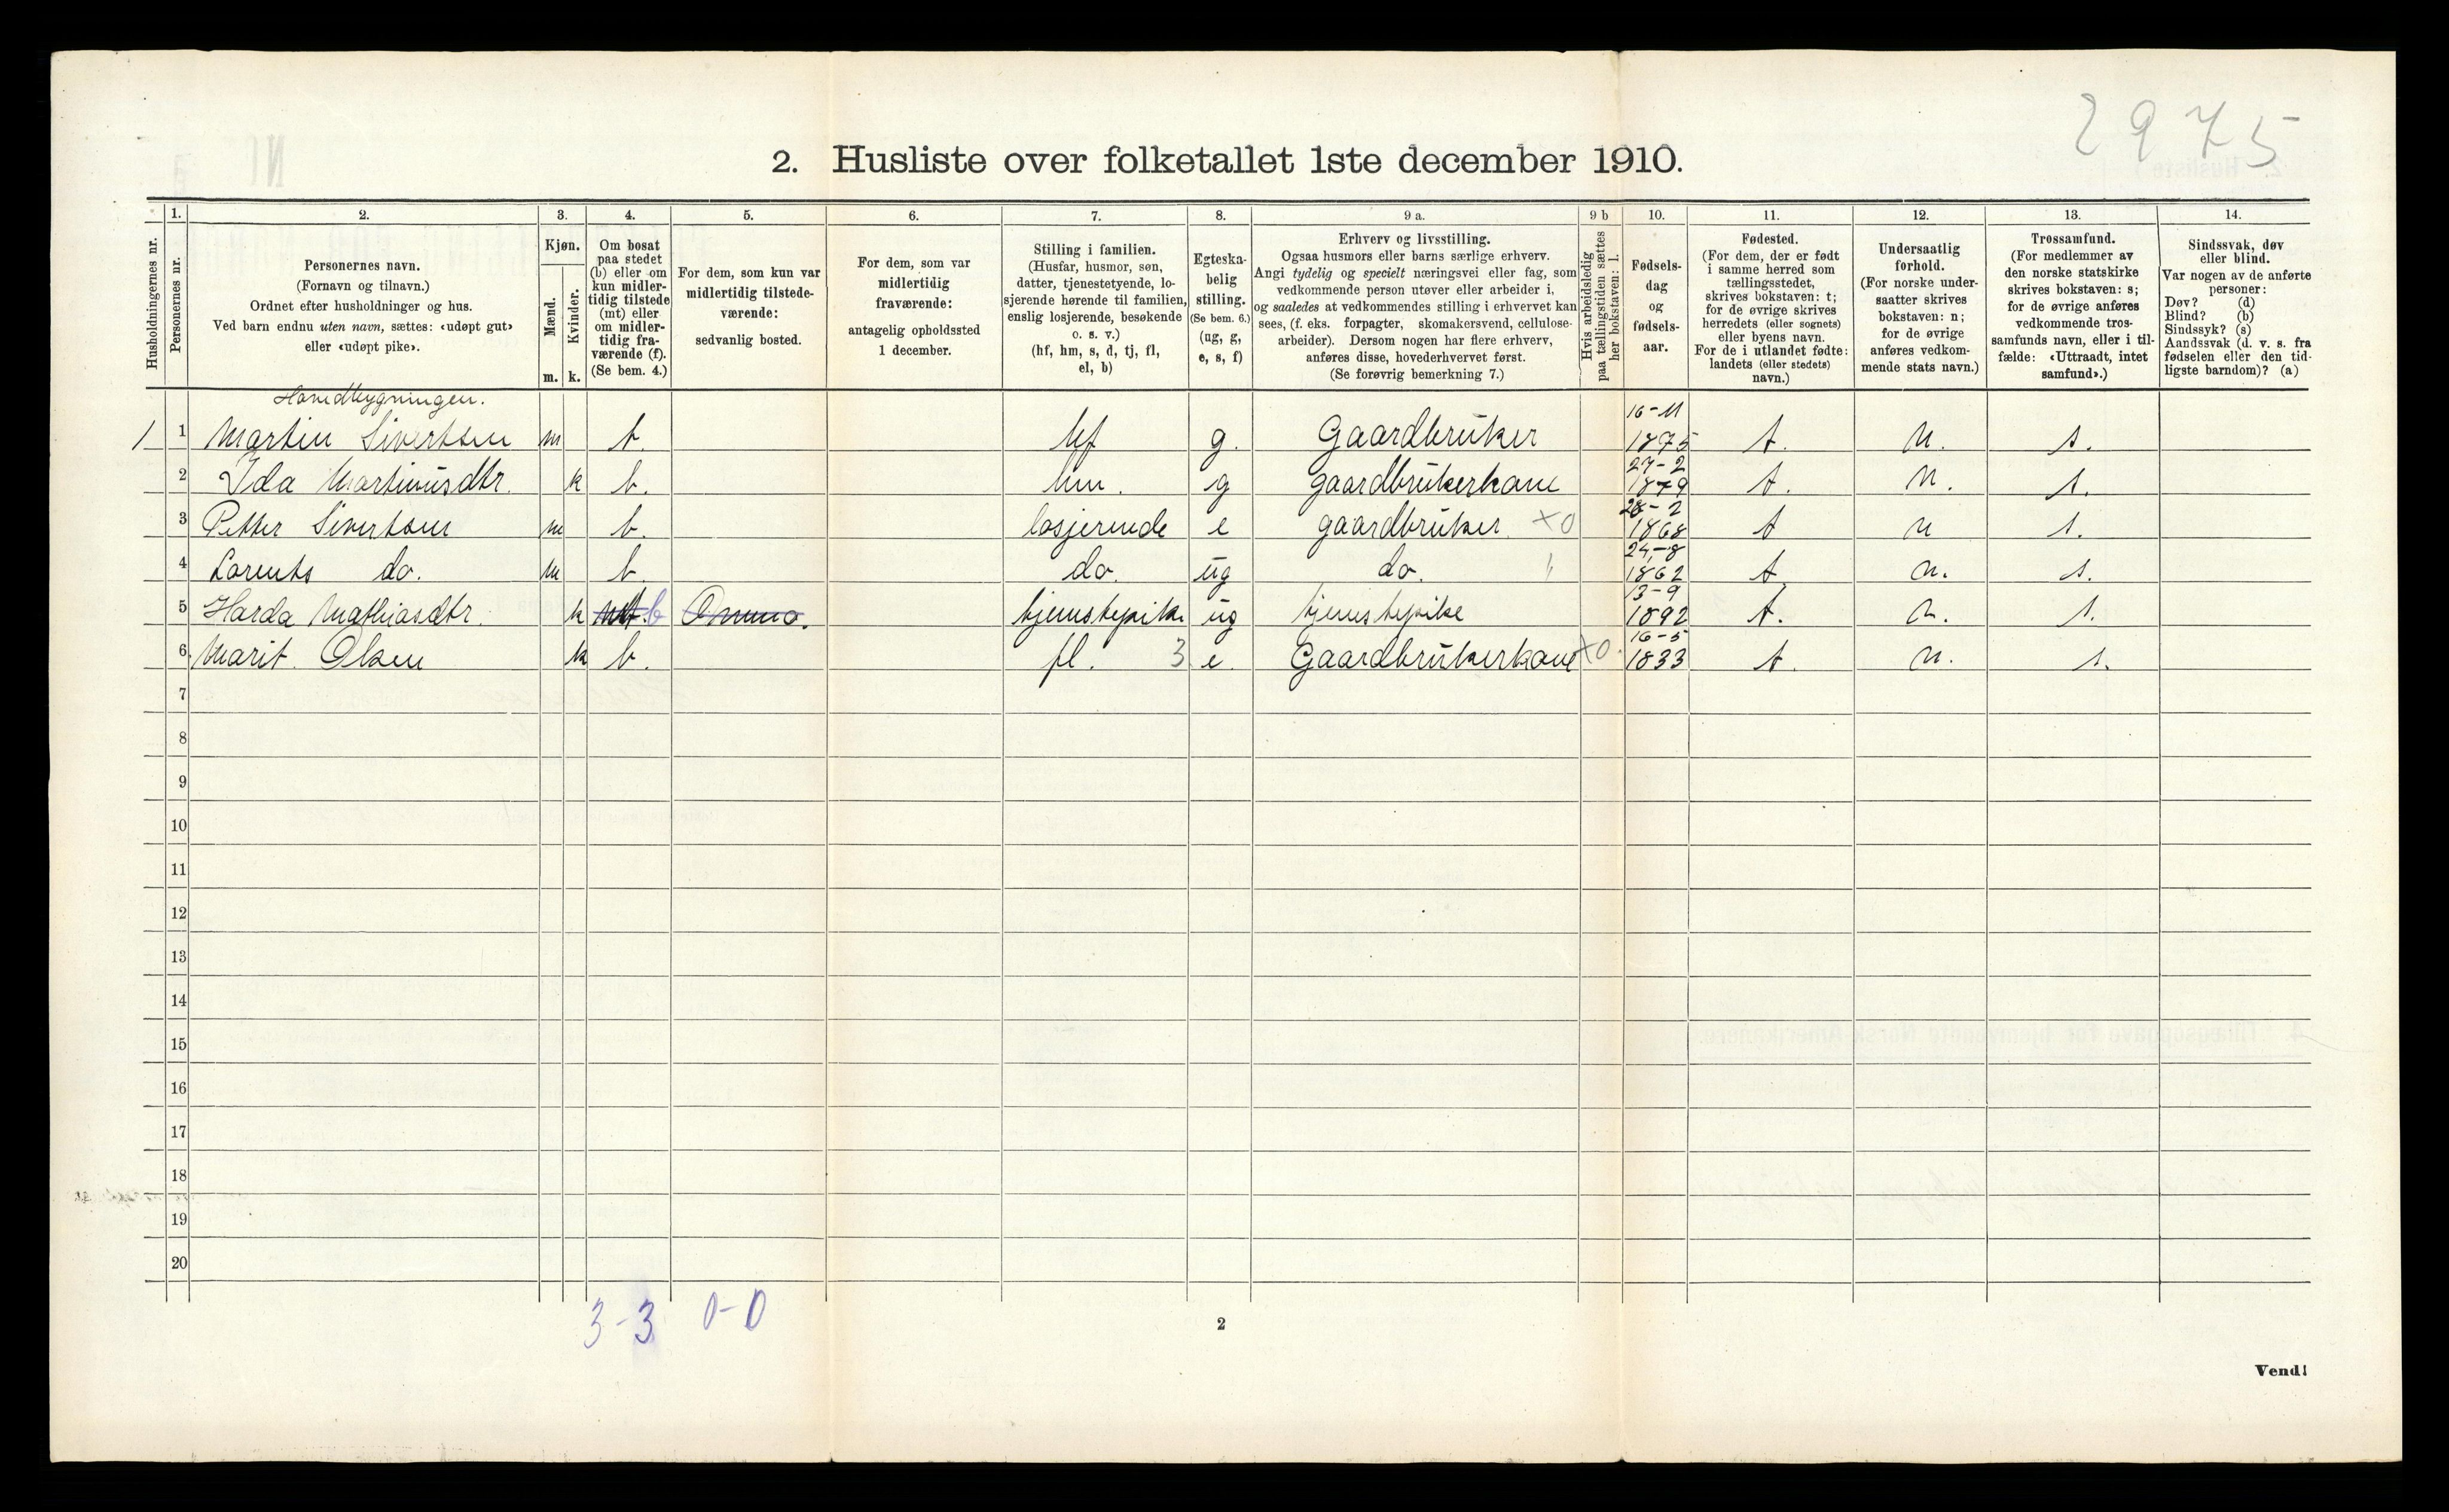 2975
2. Husliste over folketallet 1ste december 1910.
Husholdningernes nr.
1.
Personernes nr.
2.
Personernes navn.
(Fornavn og tilnavn.)
Ordnet efter husholdninger og hus.
Ved barn endnu uten navn, sættes: «udøpt gut»
eller «udøpt pike».
3.
Kjøn.
Mænd.
Kvinder.
m. k.
4.
Om bosat
paa stedet
(b) eller om
kun midler-
tidig tilstede
(mt) eller
om midler-
tidig fra-
værende (f).
(Se bem. 4.)
5.
For dem, som kun var
midlertidig tilstede-
værende:
sedvanlig bosted.
6.
For dem, som var
midlertidig
fraværende:
antagelig opholdssted
1 december.
7.
Stilling i familien.
(Husfar, husmor, søn,
datter, tjenestetyende, lo-
sjerende hørende til familien,
enslig losjerende, besøkende
o. s. v.)
(hf, hm, s, d, tj, fl,
el, b)
8.
Egteska-
belig
stilling.
(Se bem. 6.)
(ug, g,
e, s, f)
9 a.
Erhverv og livsstilling.
Ogsaa husmors eller barns særlige erhverv.
Angi tydelig og specielt næringsvei eller fag, som
vedkommende person utøver eller arbeider i,
og saaledes at vedkommendes stilling i erhvervet kan
sees, (f. eks. forpagter, skomakersvend, cellulose-
arbeider). Dersom nogen har flere erhverv,
anføres disse, hovederhvervet først.
(Se forøvrig bemerkning 7.)
9 b
Hvis arbeidsledig
paa tællingstiden sættes
her bokstaven: l.
10.
Fødsels-
dag
og
fødsels-
aar.
11.
Fødested.
(For dem, der er født
i samme herred som
tællingsstedet,
skrives bokstaven: t;
for de øvrige skrives
herredets (eller sognets)
eller byens navn.
For de i utlandet fødte:
landets (eller stedets)
navn.)
12.
Undersaatlig
forhold.
(For norske under-
saatter skrives
bokstaven: n;
for de øvrige
anføres vedkom-
mende stats navn.)
13.
Trossamfund.
(For medlemmer av
den norske statskirke
skrives bokstaven: s;
for de øvrige anføres
vedkommende tros-
samfunds navn, eller i til-
fælde: «Uttraadt, intet
samfund».)
14.
Sindssvak, døv
eller blind.
Var nogen av de anførte
personer:
Døv? (d)
Blind? (b)
Sindssyk? (s)
Aandssvak (d. v. s. fra
fødselen eller den tid-
ligste barndom)? (a)
Hovedbygningen.
1 1 Martin Sivertsen m b. hf g. Gaardbruker 16-11 1875 t. n. s.
2 Ida Martinusdtr. k b. hm. g gaardbrukerkone 27-2 1879 t. n. s.
3 Petter Sivertsen m b. losjerende e gaardbruker x0 28-2 1868 t n s.
4 Lorents do. m b. do. ug do. " 24-8 1862 t n. s.
5 Harda Mathiasdtr. k mt. b tjenstepike ug tjenstepike 13-9 1892 t. n. s.
6 Marit Olsen k b. fl. 3 e. Gaardbrukerkone x0. 16-5 1833 t. n. s.
7
8
9
10
11
12
13
14
15
16
17
18
19
20
3-3 0-0
2
Vend!